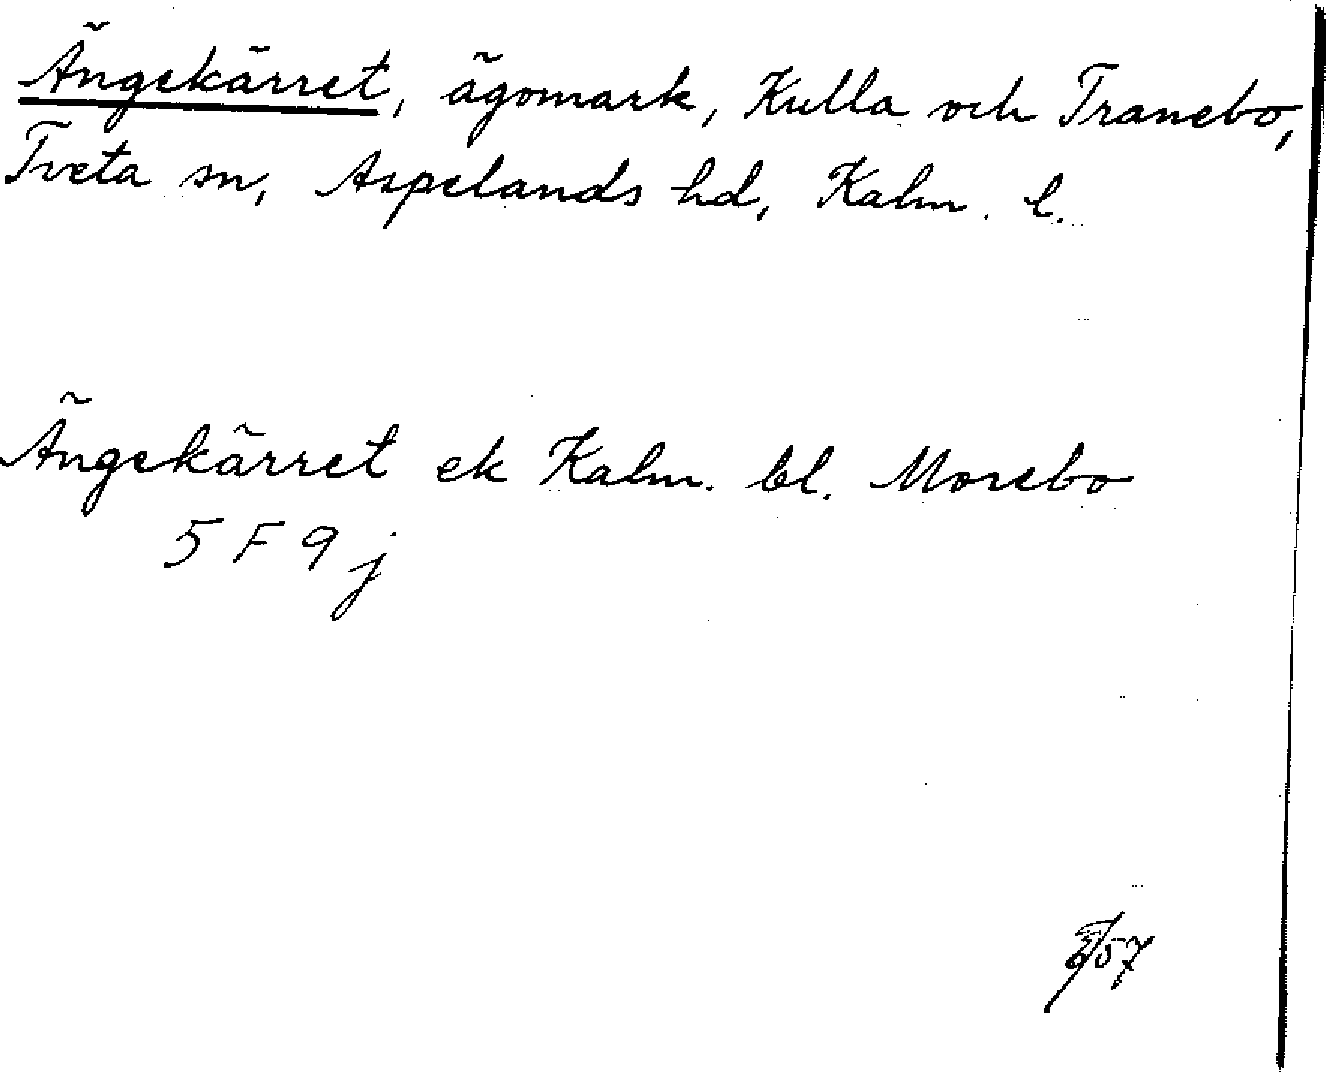 Ängekärret, ägomark, Kulla och Tranebo,
Tveta sn, Aspelands hd, Kalm. l.
Ängekärret ek Kalm. bl. Morebo
5 F 9 j